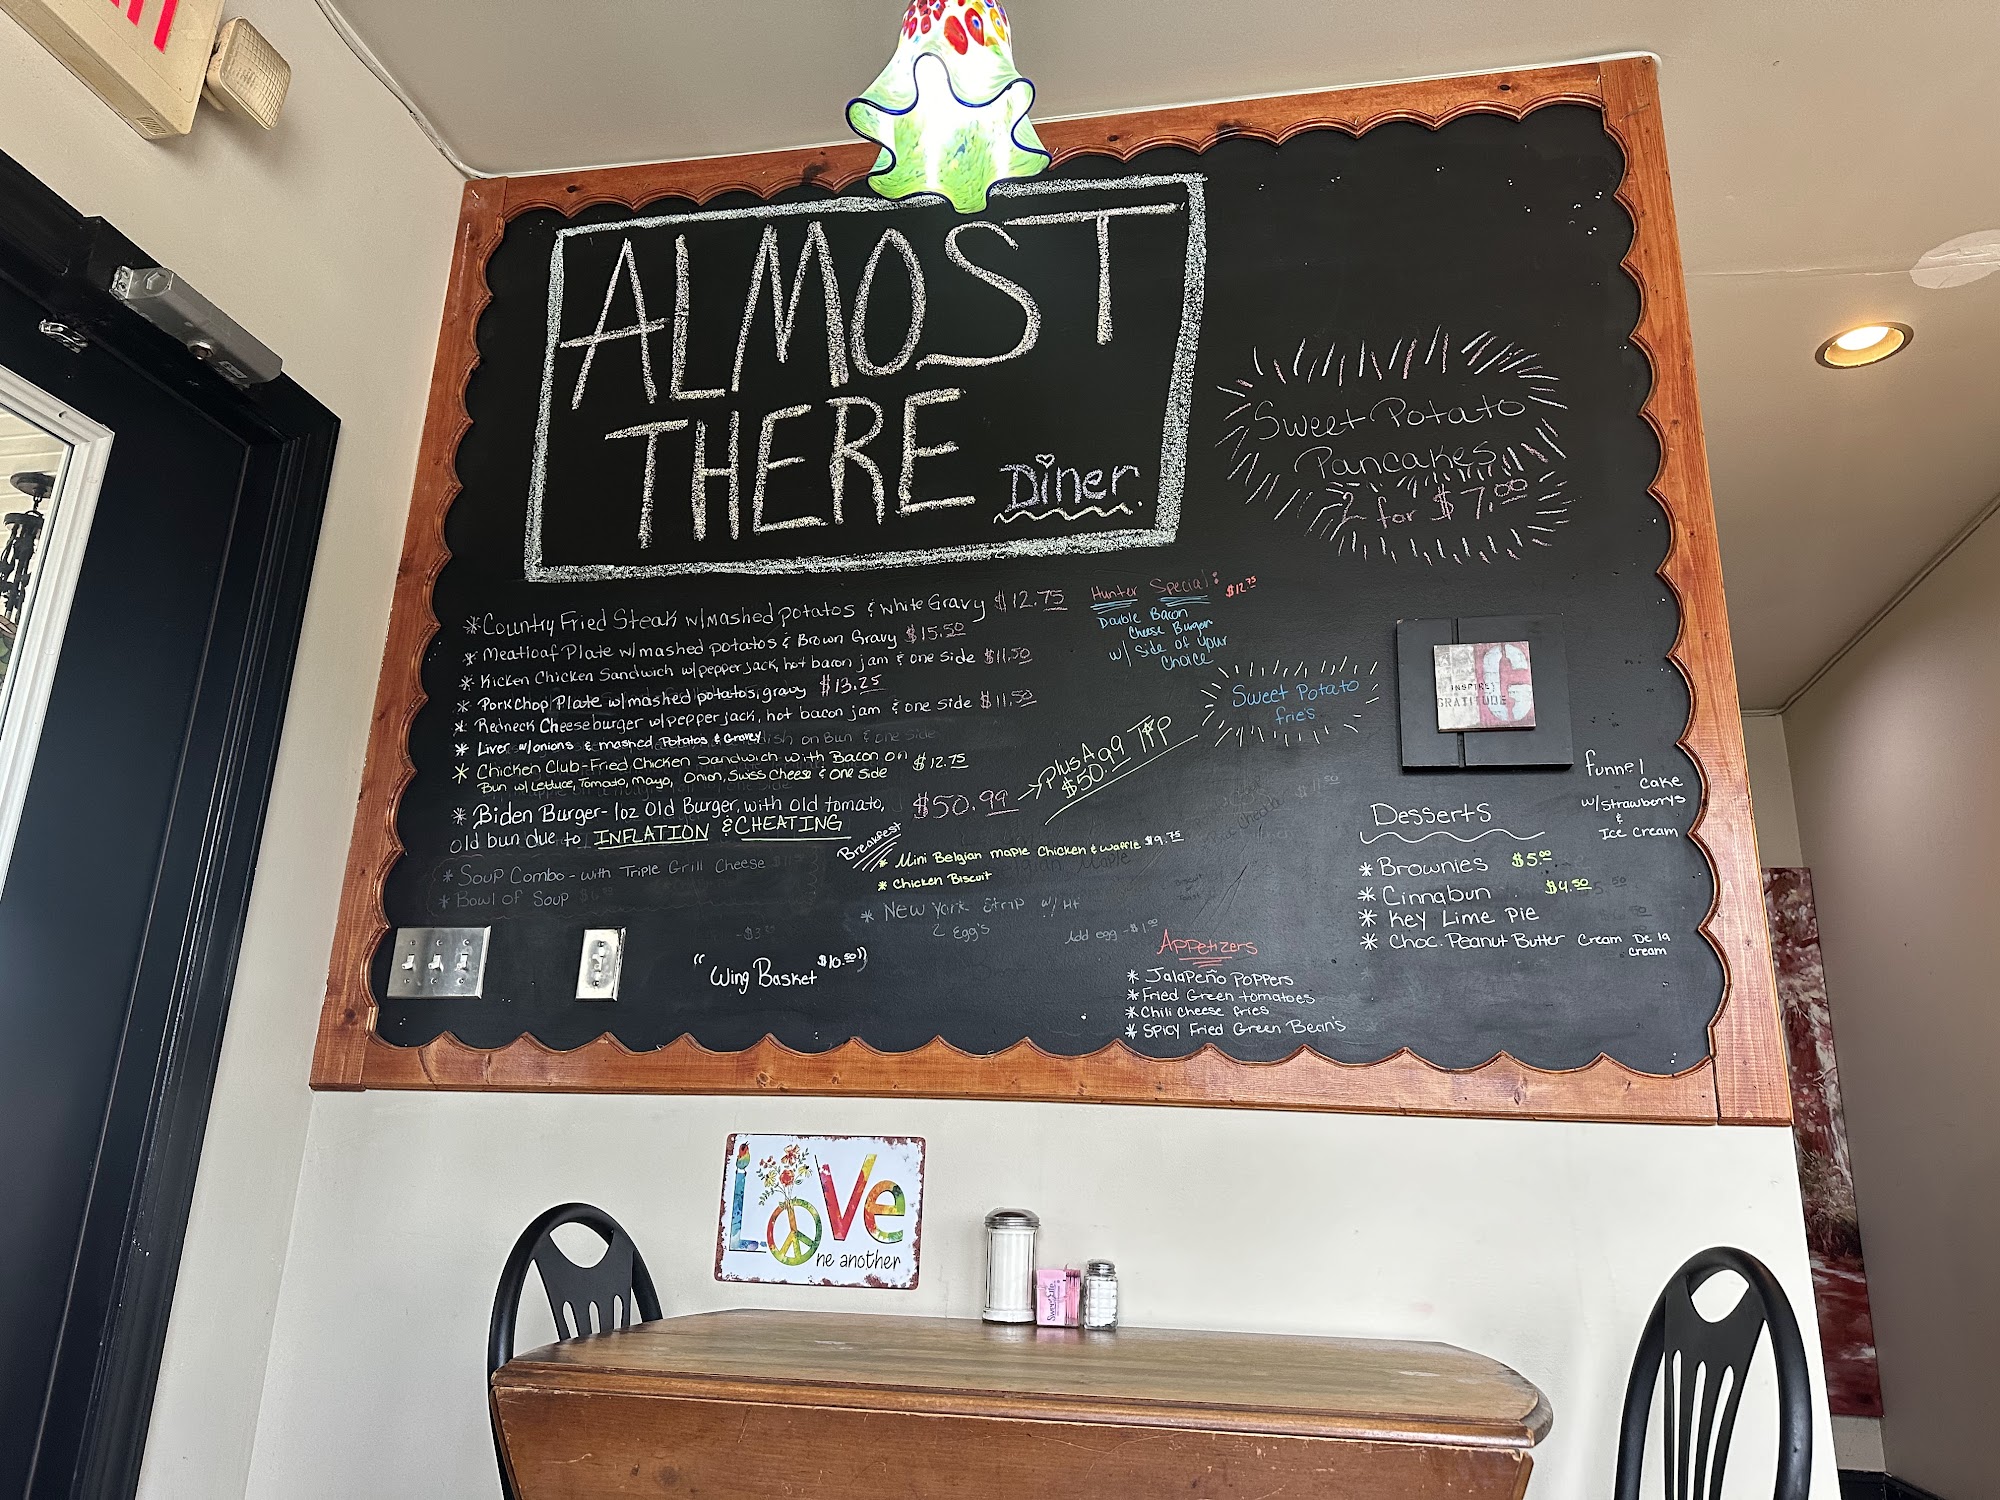 ALMOST
THERE
Diner
Sweet Potato
Pancakes
2 for $7.00
* Country Fried Steak w/mashed potatos & white Gravy $12.75
* Meatloaf Plate w/mashed potatos & Brown Gravy $15.50
* Kicken Chicken Sandwich w/pepper jack, hot bacon jam & one side $11.50
* Pork Chop Plate w/mashed potatos, gravy $13.25
* Redneck Cheeseburger w/pepper jack, hot bacon jam & one side $11.50
* Liver w/onions & mashed Potatos & Gravey
* Chicken Club-Fried Chicken Sandwich with Bacon on $12.75
Bun w/Lettuce, Tomato, Mayo, Onion, Swiss Cheese & One Side
* Biden Burger- 1oz Old Burger, with old tomato, $50.99
old bun due to INFLATION & CHEATING
Plus A 99 TIP
$50.99
* Soup Combo - with Triple Grill Cheese
* Bowl of Soup
Hunter Special: $12.75
Double Bacon
Cheese Burger
w/ side of your
Choice
Sweet Potato
frie's
Breakfast
* Mini Belgian maple Chicken & Waffle $9.75
* Chicken Biscuit
* New York Strip w/
2 Egg's
Add egg - $1.00
"Wing Basket" $10.50
Appetizers
* Jalapeño Poppers
* Fried Green tomatoes
* Chili cheese fries
* Spicy Fried Green Bean's
INSPIRE
GRATITUDE
G
funnel
cake
w/strawberrys
&
Ice Cream
Desserts
* Brownies $5.00
* Cinnabun $4.50
* Key Lime Pie
* Choc. Peanut Butter Cream De la
Cream
LOVe
ne another
Sweet'N Low